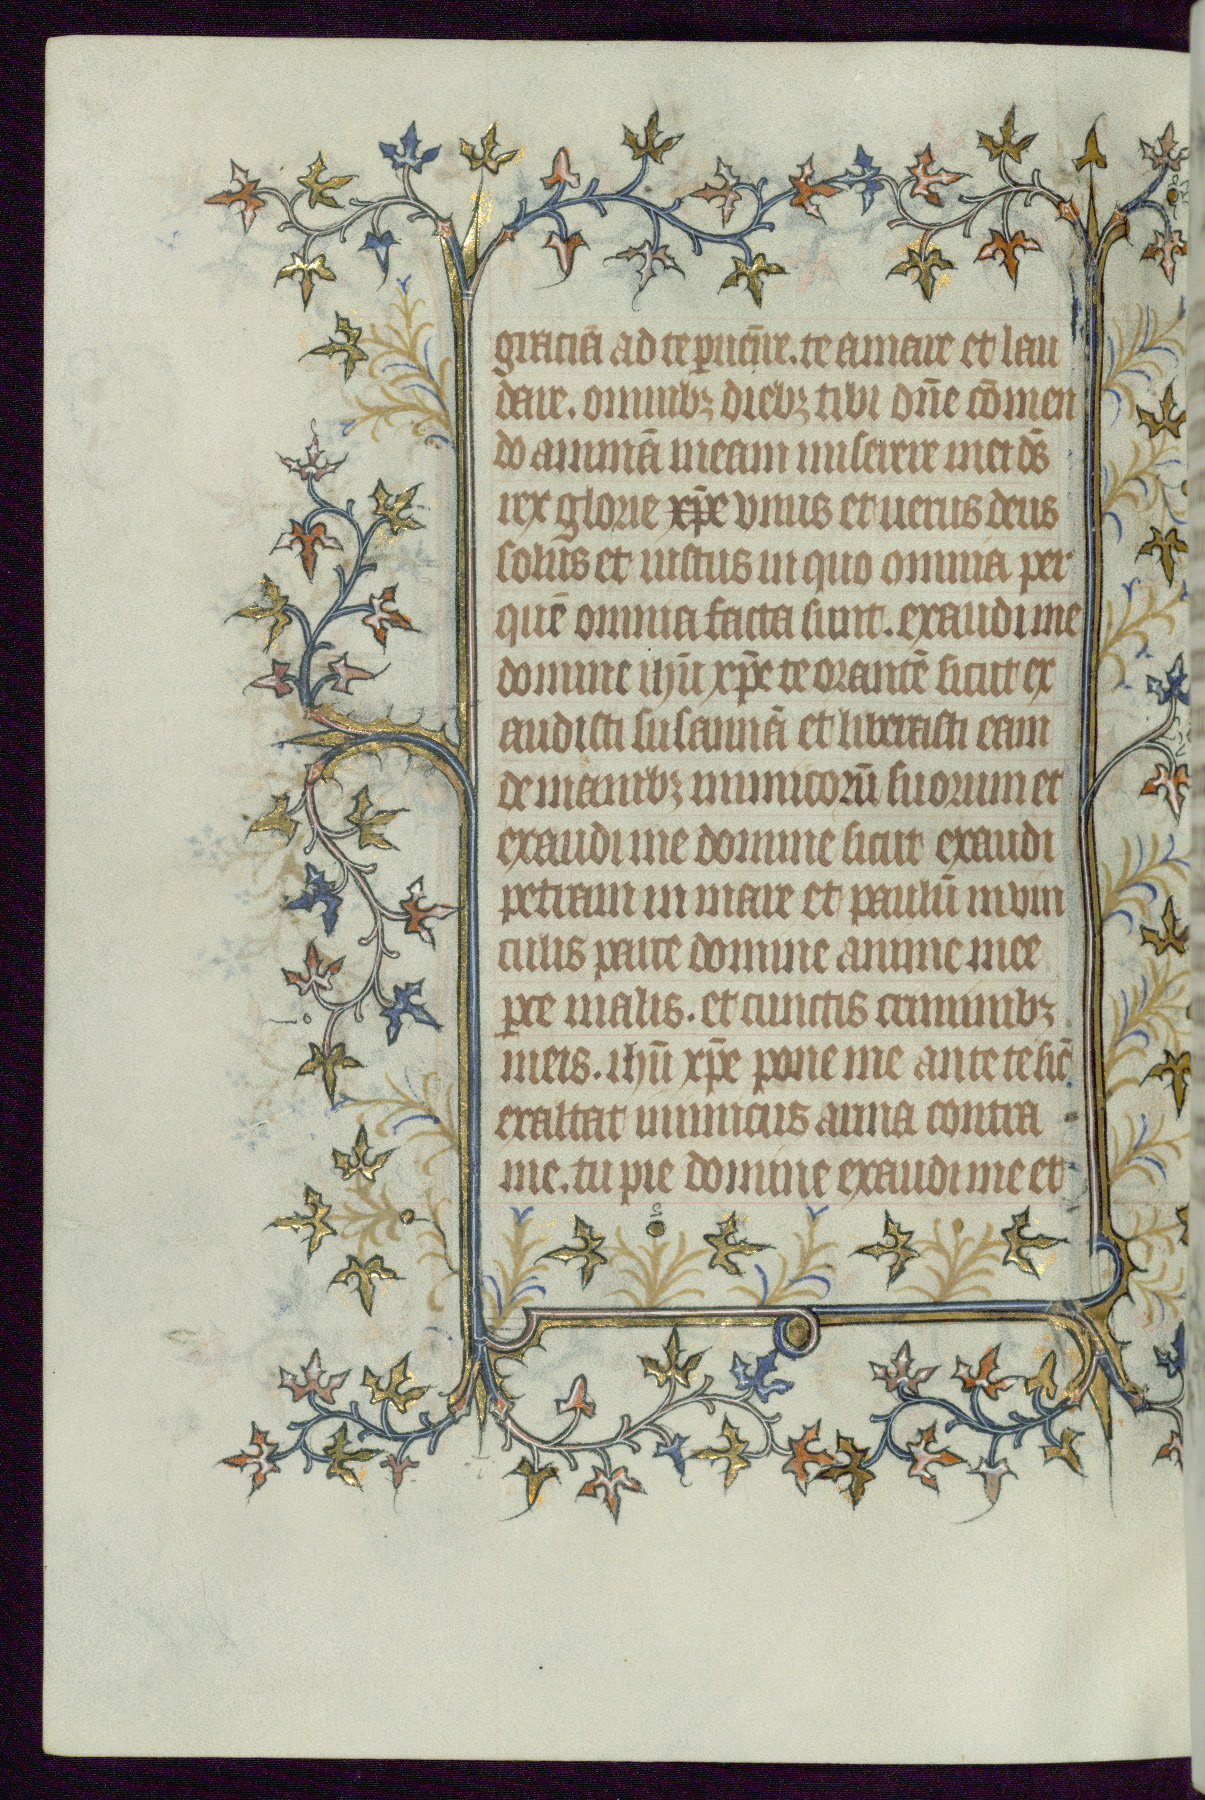 graciā ad te p̄uenire. te amare et lau
dare. omnibꝫ diebꝫ tibi dn̄e cōmen
do animā meam miserere mei ds̄
rex glorie xp̄e vnus et uerus deus
solus et iustus in quo omnia per
quē omnia facta sunt. exaudi me
domine ihū xp̄e te orantē sicut ex
audisti susannā et liberasti eam
de manibꝫ inimicorū suorum et
exaudi me domine sicut exaudi
petram in mare et paulū in vin
culis parce domine anime mee
p̄ce malis. et cunctis criminibꝫ
meis. ihū xp̄e pone me ante te sic̄
exaltat inimicus arma contra
me. tu pie domine exaudi me et